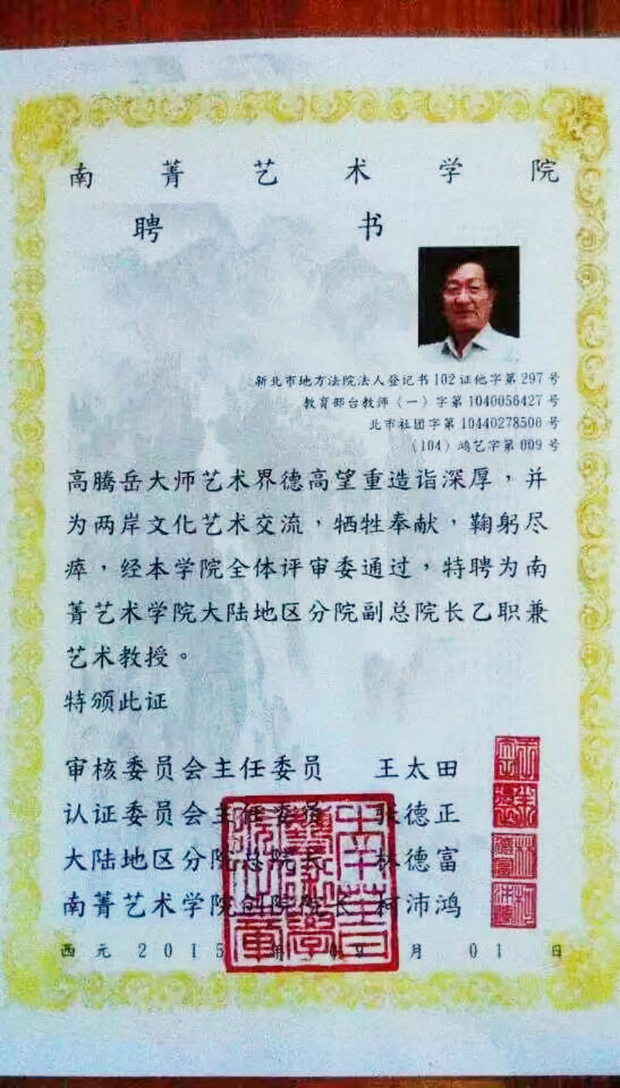 南菁艺术学院
聘书
新北市地方法院法人登记书102证他字第297号
教育部台教师（一）字第1040056427号
北市社团字第10440278500号
（104）鸿艺字第009号
高腾岳大师艺术界德高望重造诣深厚，并
为两岸文化艺术交流，牺牲奉献，鞠躬尽
瘁，经本学院全体评审委通过，特聘为南
菁艺术学院大陆地区分院副总院长乙职兼
艺术教授。
特颁此证
审核委员会主任委员 王太田
认证委员会主任委员 张德正
大陆地区分院总院长 林德富
南菁艺术学院创院院长 柯沛鸿
西元2015年09月01日